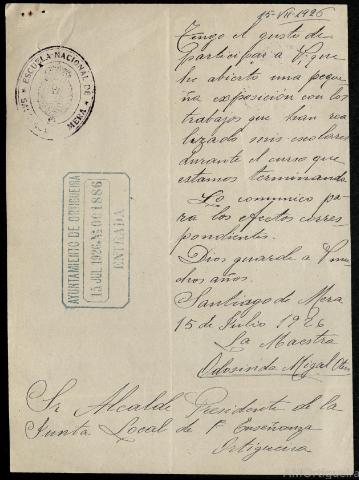 15-VII-1926
Tengo el gusto de
participar a V. que
he abierto una peque
ña exposición con los
trabajos que han rea
lizado mis escolares
durante el curso que
estamos terminando
Lo comunico pa
ra los efectos corres
pondientes.
Dios guarde a V. mu
chos años.
Santiago de Mera
15 de Julio 1926
La Maestra
Odosinda Migal
ESCUELA NACIONAL DE
MERA
AYUNTAMIENTO DE ORTIGUEIRA
15 JUL 1926 Nº 001886
ENTRADA
Sr Alcalde Presidente de la
Junta Local de 1ª Enseñanza
Ortigueira